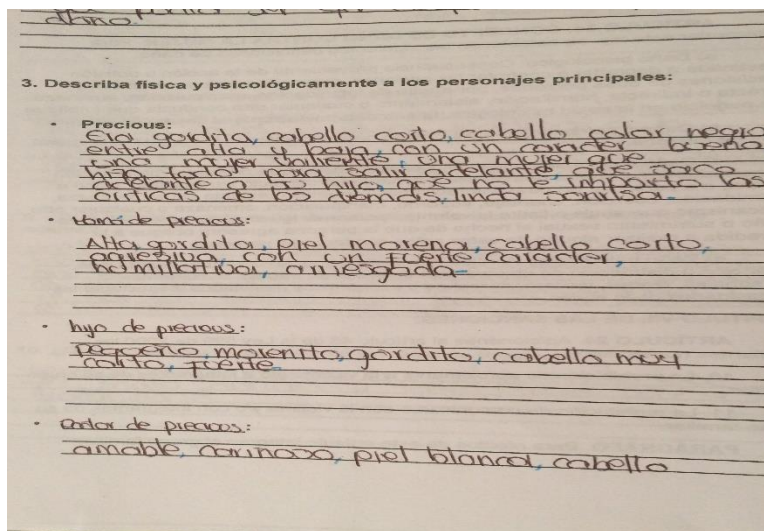 daño.
3. Describa física y psicológicamente a los personajes principales:
• Precious:
Era gordita, cabello corto, cabello color negro
entre alta y baja, con un caracter bueno
una mujer valiente, una mujer que
hizo todo para salir adelante, que saco
adelante a su hijo, que no le importo las
criticas de los demás, linda sonrisa.
• Mamá de precious:
Alta, gordita, piel morena, cabello corto,
agresiva, con un fuerte carácter,
humillativa, arriesgada
• hijo de precious:
pequeño, morenito, gordito, cabello muy
corto, fuerte.
• de precious:
amable, cariñoso, piel blanca, cabello